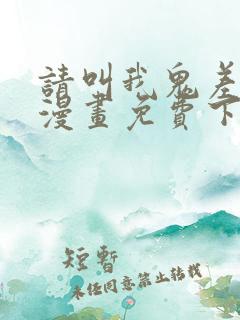 請叫我鬼差
漫畫免費下
短暫
未经同意禁止转载